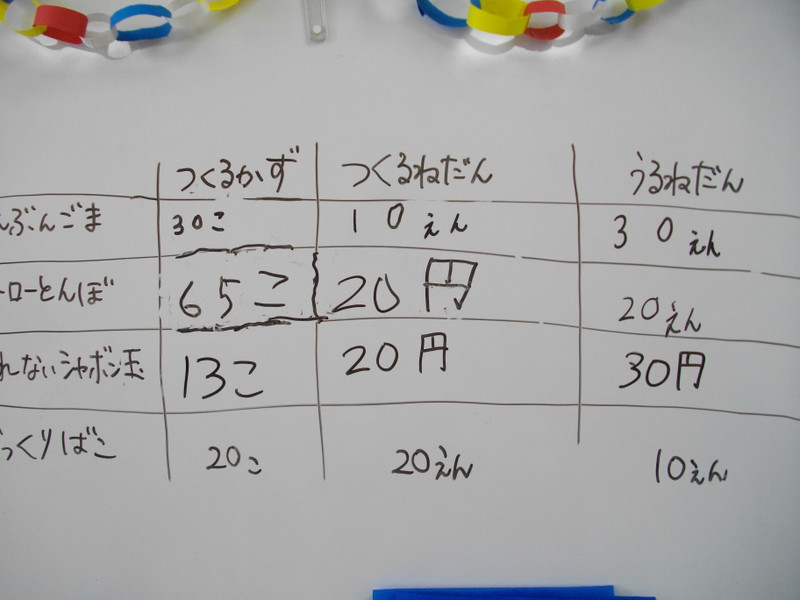 つくるかず つくるねだん うるねだん
んぶんごま 30こ 10えん 30えん
トローとんぼ 65こ 20円 20えん
れないシャボン玉 13こ 20円 30円
っくりばこ 20こ 20えん 10えん